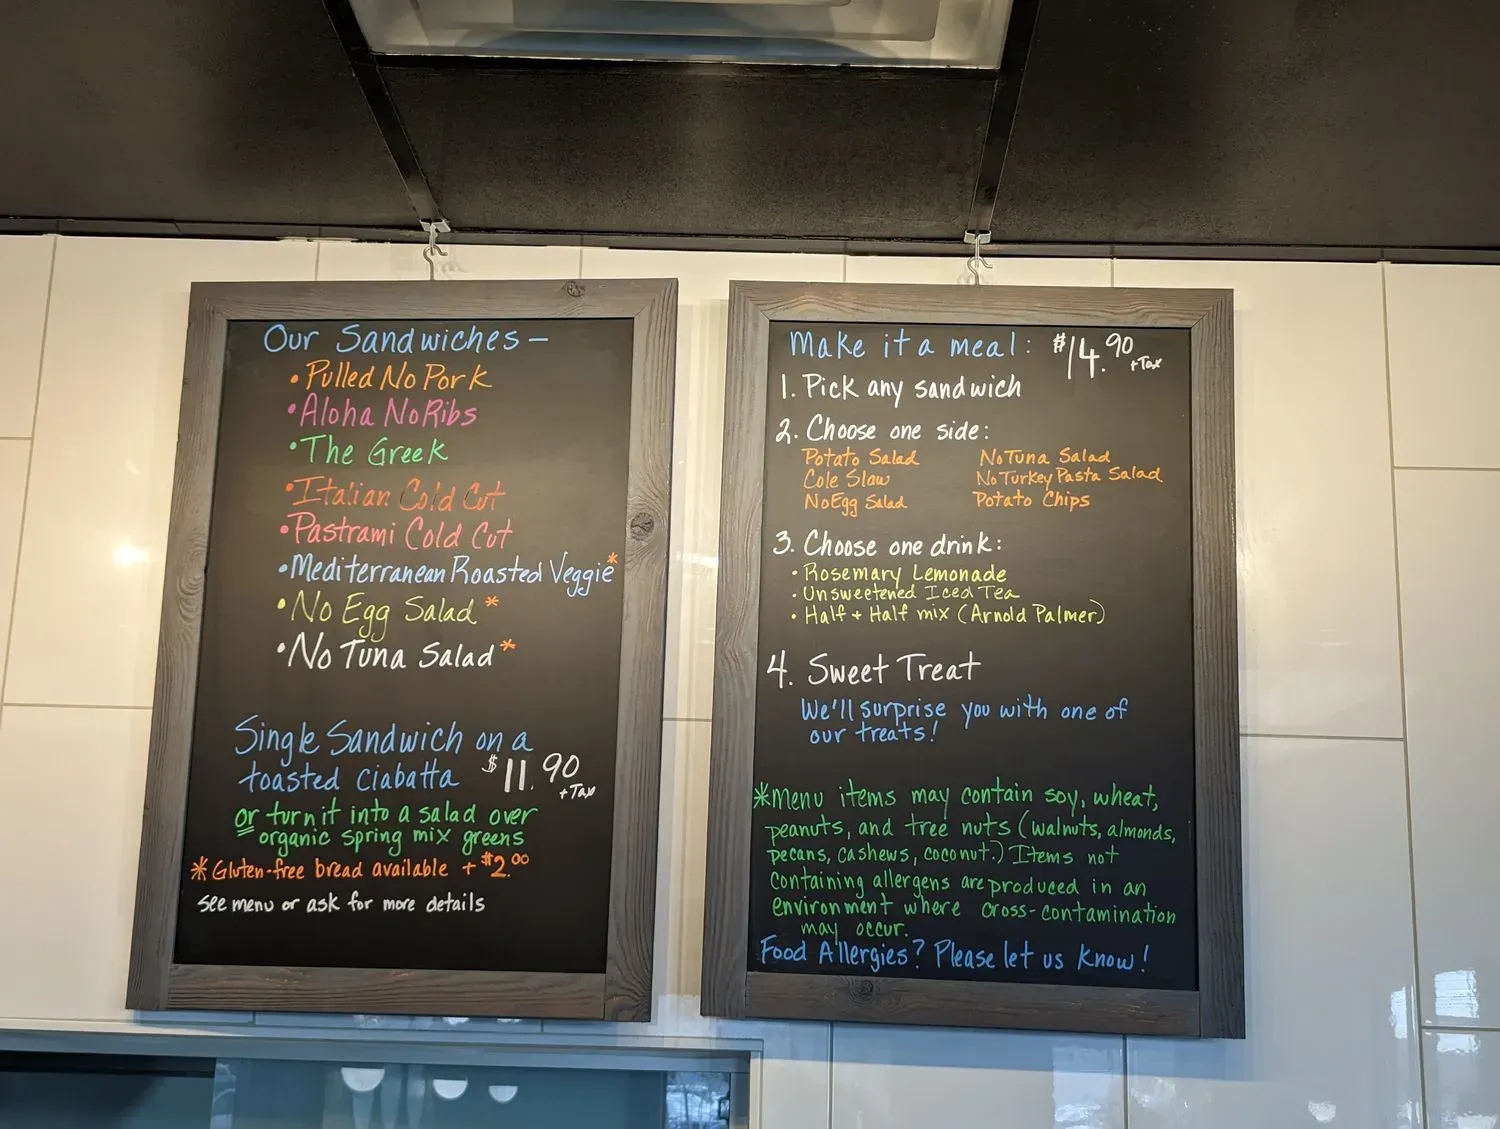 Our Sandwiches –
• Pulled No Pork
• Aloha No Ribs
• The Greek
• Italian Cold Cut
• Pastrami Cold Cut
• Mediterranean Roasted Veggie *
• No Egg Salad *
• No Tuna Salad *
Single Sandwich on a
toasted ciabatta $11.90 + Tax
or turn it into a salad over
organic spring mix greens
* Gluten-free bread available + $2.00
see menu or ask for more details
Make it a meal: $14.90 + Tax
1. Pick any sandwich
2. Choose one side:
Potato Salad No Tuna Salad
Cole Slaw No Turkey Pasta Salad
No Egg Salad Potato Chips
3. Choose one drink:
• Rosemary Lemonade
• Unsweetened Iced Tea
• Half + Half mix (Arnold Palmer)
4. Sweet Treat
We'll surprise you with one of
our treats!
* Menu items may contain soy, wheat,
peanuts, and tree nuts (walnuts, almonds,
pecans, cashews, coconut.) Items not
containing allergens are produced in an
environment where cross-contamination
may occur.
Food Allergies? Please let us know!